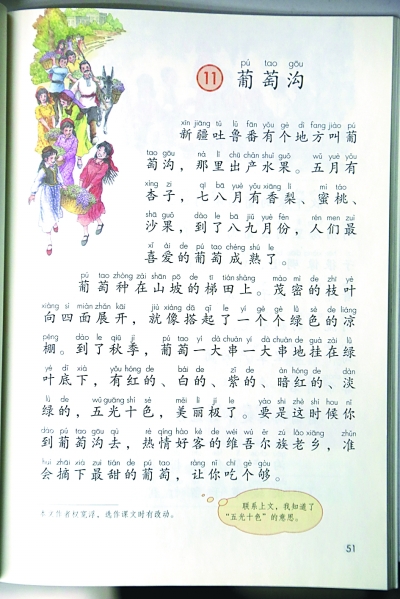 pú tao gōu
11 葡萄沟
xīn jiāng tǔ lǔ fān yǒu gè dì fang jiào pú
新疆吐鲁番有个地方叫葡
tao gōu nà lǐ chū chǎn shuǐ guǒ wǔ yuè yǒu
萄沟，那里出产水果。五月有
xìng zi qī bā yuè yǒu xiāng lí mì táo
杏子，七八月有香梨、蜜桃、
shā guǒ dào le bā jiǔ yuè fèn rén men zuì
沙果，到了八九月份，人们最
xǐ ài de pú tao chéng shú le
喜爱的葡萄成熟了。
pú tao zhòng zài shān pō de tī tián shàng mào mì de zhī yè
葡萄种在山坡的梯田上。茂密的枝叶
xiàng sì miàn zhǎn kāi jiù xiàng dā qǐ le yí gè gè lǜ sè de liáng
向四面展开，就像搭起了一个个绿色的凉
péng dào le qiū jì pú tao yí dà chuàn yí dà chuàn de guà zài lǜ
棚。到了秋季，葡萄一大串一大串地挂在绿
yè dǐ xià yǒu hóng de bái de zǐ de àn hóng de dàn
叶底下，有红的、白的、紫的、暗红的、淡
lǜ de wǔ guāng shí sè měi lì jí le yào shi zhè shí hou nǐ
绿的，五光十色，美丽极了。要是这时候你
dào pú tao gōu qù rè qíng hào kè de wéi wú ěr zú lǎo xiāng zhǔn
到葡萄沟去，热情好客的维吾尔族老乡，准
huì zhāi xià zuì tián de pú tao ràng nǐ chī gè gòu
会摘下最甜的葡萄，让你吃个够。
联系上文，我知道了
“五光十色”的意思。
文作者权宽浮，选作课文时有改动。
51